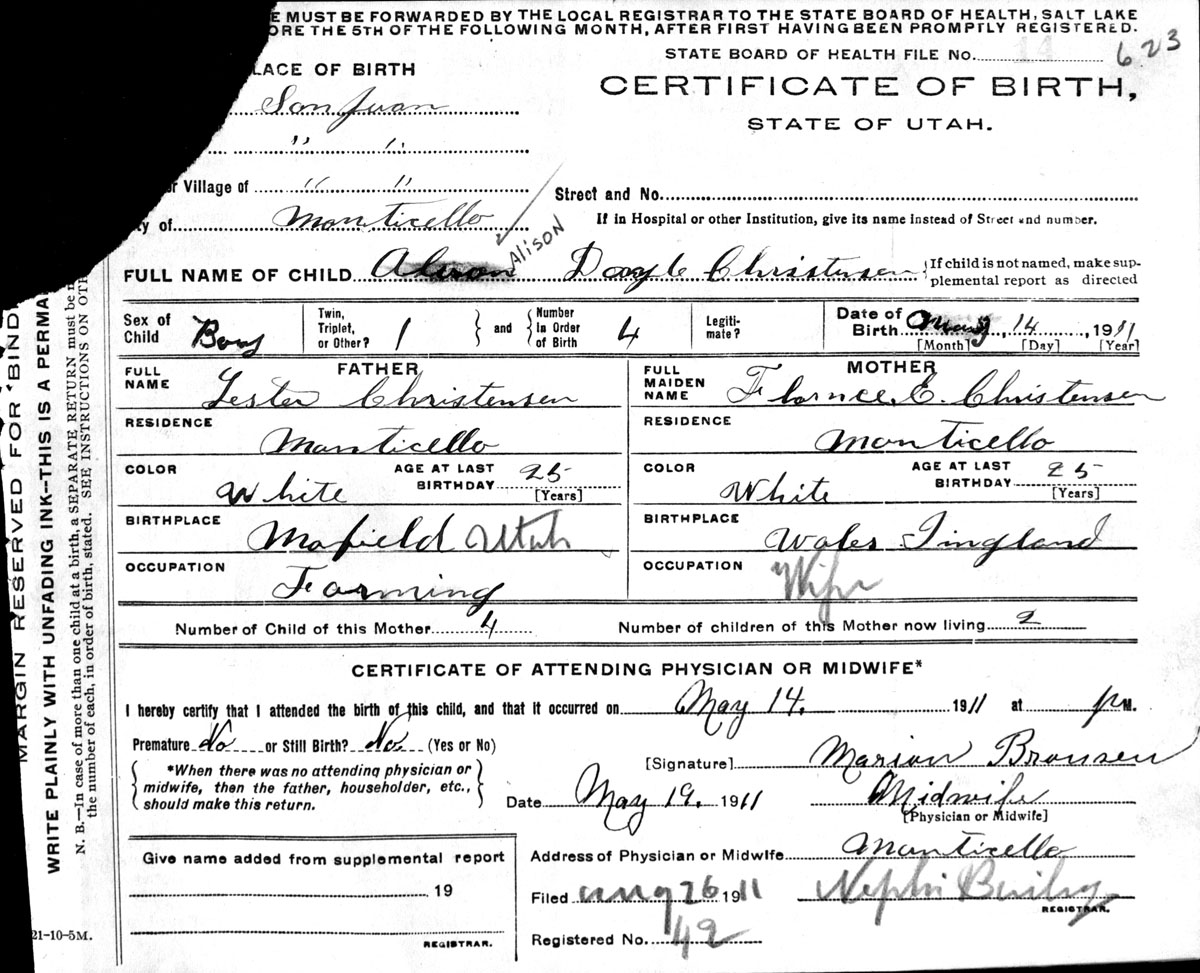 E MUST BE FORWARDED BY THE LOCAL REGISTRAR TO THE STATE BOARD OF HEALTH, SALT LAKE
ORE THE 5TH OF THE FOLLOWING MONTH, AFTER FIRST HAVING BEEN PROMPTLY REGISTERED.
STATE BOARD OF HEALTH FILE No. 14 623
LACE OF BIRTH
CERTIFICATE OF BIRTH,
STATE OF UTAH.
San Juan
" "
or Village of " "
Street and No.
ty of Monticello
If in Hospital or other Institution, give its name instead of Street and number.
Alison
FULL NAME OF CHILD Doyle Christensen {If child is not named, make sup-
plemental report as directed
Sex of Child Boy
Twin, Triplet, or Other? 1 } and { Number In Order of Birth 4
Legiti- mate?
Date of Birth May, 14, 1911
[Month] [Day] [Year]
FATHER
FULL NAME Lester Christensen
MOTHER
FULL MAIDEN NAME Flornce E. Christensen
RESIDENCE Monticello
RESIDENCE Monticello
COLOR White AGE AT LAST BIRTHDAY 25 [Years]
COLOR White AGE AT LAST BIRTHDAY 25 [Years]
BIRTHPLACE Mofield Utah
BIRTHPLACE Wales Iingland
OCCUPATION Farming
OCCUPATION Wife
Number of Child of this Mother 4 Number of children of this Mother now living 2
CERTIFICATE OF ATTENDING PHYSICIAN OR MIDWIFE*
I hereby certify that I attended the birth of this child, and that it occurred on May 14. 1911 at P M.
Premature No or Still Birth? No. (Yes or No)
*When there was no attending physician or
midwife, then the father, householder, etc.,
should make this return.
[Signature] Marion Bronsen
Date May 19. 1911 Midwife
[Physician or Midwife]
Give name added from supplemental report
19
REGISTRAR.
Address of Physician or Midwife Monticello
Filed aug 26 1911 Nephi Bailey
REGISTRAR.
Registered No. 42
21-10-5M.
MARGIN RESERVED FOR BIND
WRITE PLAINLY WITH UNFADING INK—THIS IS A PERMA
N. B.—In case of more than one child at a birth, a SEPARATE RETURN must be
the number of each, in order of birth, stated. SEE INSTRUCTIONS ON OTH